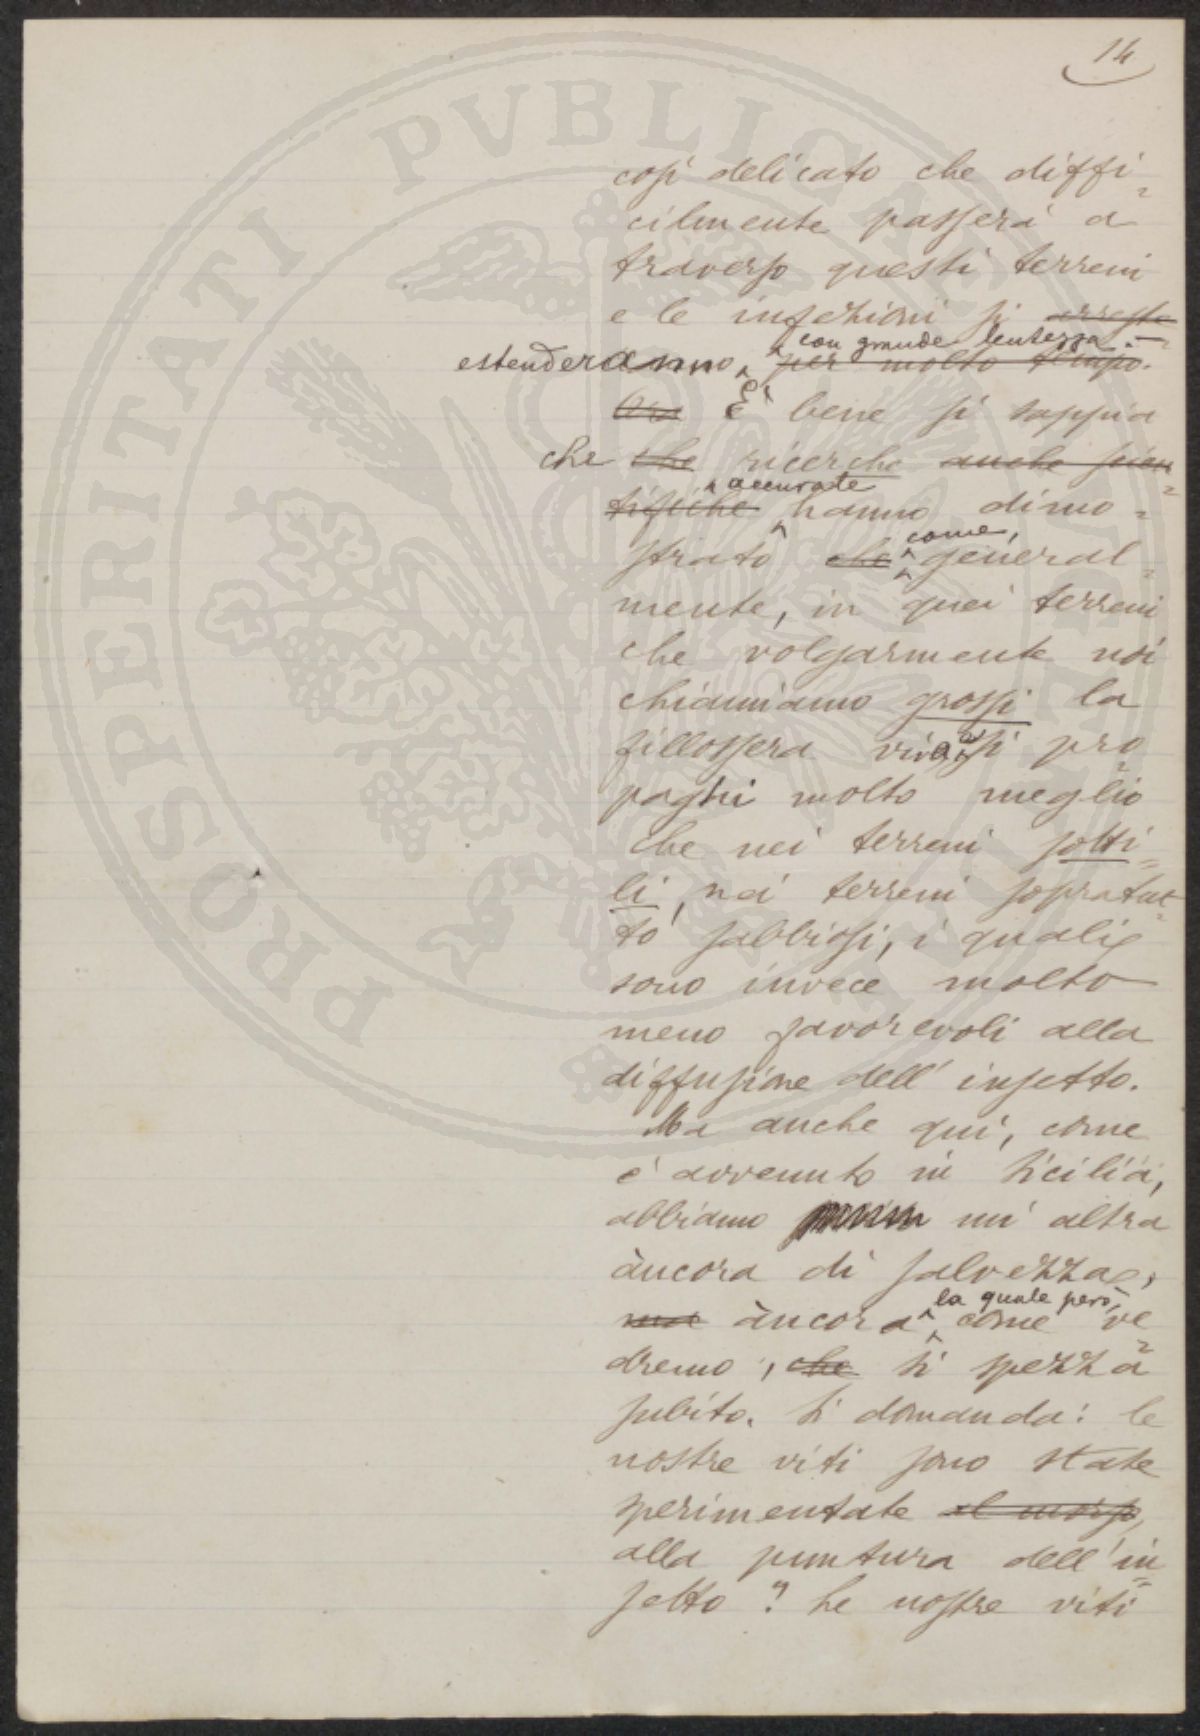 14
così delicato che diffi-
cilmente passerà a
traverso questi terreni
e le infezioni si arresta
con grande lentezza.
estenderanno per molto tempo.
Ora È bene si sappia
che che ricerche anche scien
accurate
tifiche hanno dimo-
come,
strato che general-
mente, in quei terreni
che volgarmente noi
chiamiamo grossi la
fillossera viva e si pro
paghi molto meglio
che nei terreni sotti-
li, nei terreni sopratut-
to sabbiosi, i quali
sono invece molto
meno favorevoli alla
diffusione dell'insetto.
Ma anche qui, come
è avvenuto in Sicilia,
abbiamo un'altra
àncora di salvezza,
la quale però,
ma àncora come ve
dremo, che si spezza
subito. Si domanda: le
nostre viti sono state
sperimentate al morso,
alla puntura dell'in
setto? Le nostre viti
PROSPERITATI PVBLICAE